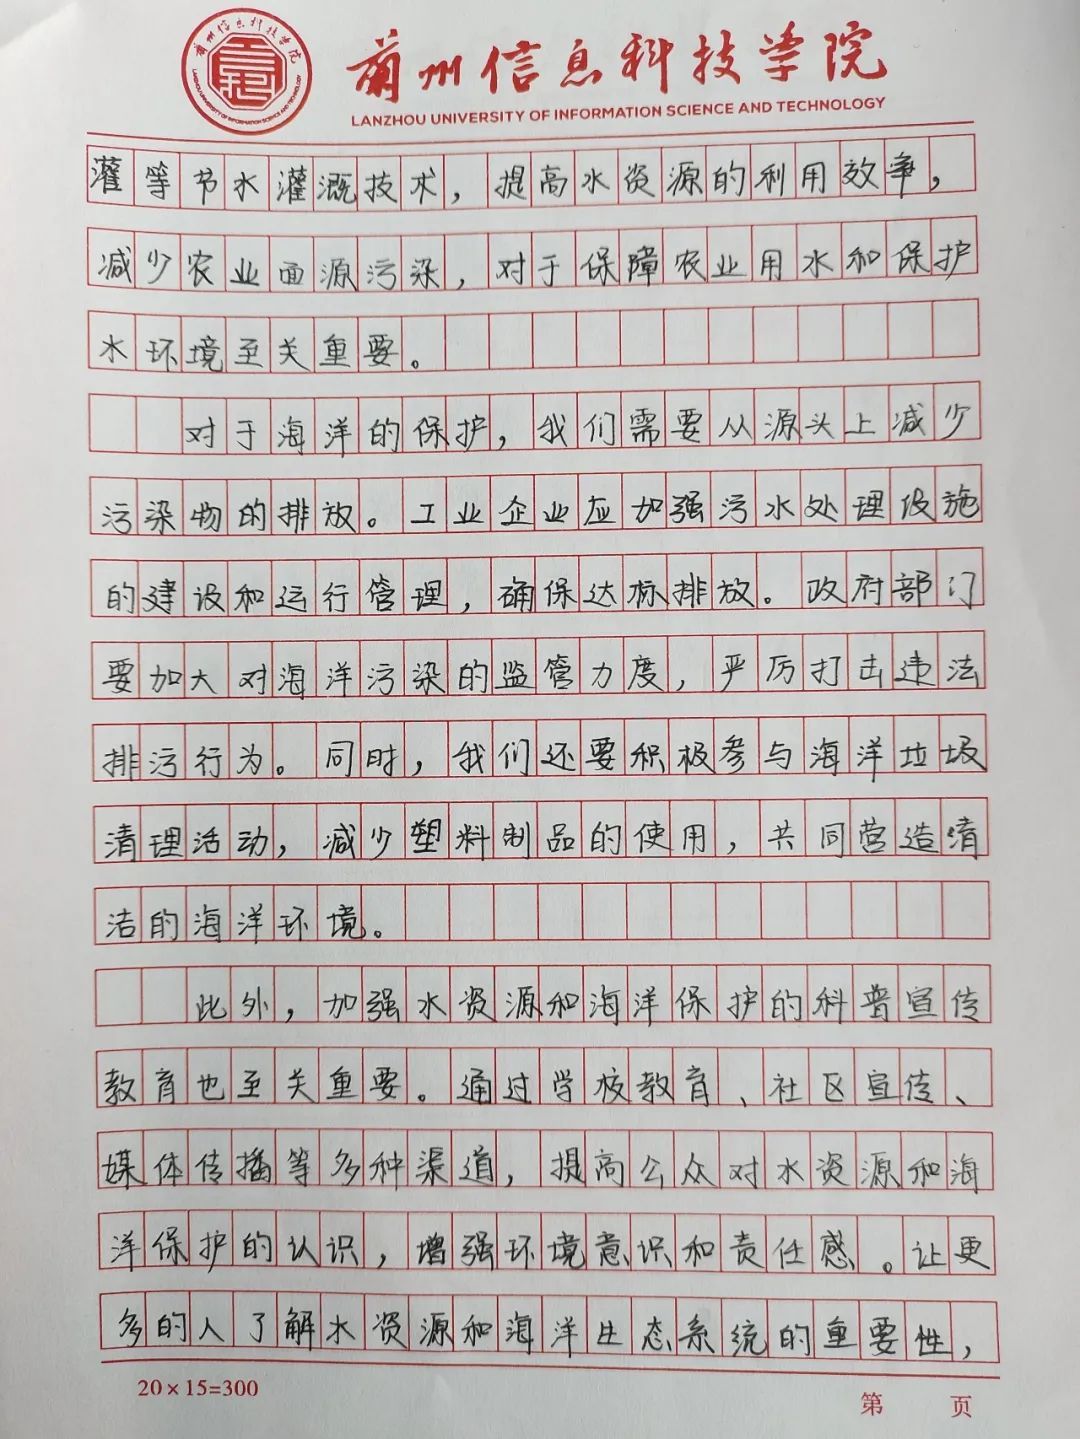 兰州信息科技学院
LANZHOU UNIVERSITY OF INFORMATION SCIENCE AND TECHNOLOGY
兰州信息科技学院
LANZHOU UNIVERSITY OF INFORMATION SCIENCE AND TECHNOLOGY
灌等节水灌溉技术，提高水资源的利用效率，
减少农业面源污染，对于保障农业用水和保护
水环境至关重要。
对于海洋的保护，我们需要从源头上减少
污染物的排放。工业企业应加强污水处理设施
的建设和运行管理，确保达标排放。政府部门
要加大对海洋污染的监管力度，严厉打击违法
排污行为。同时，我们还要积极参与海洋垃圾
清理活动，减少塑料制品的使用，共同营造清
洁的海洋环境。
此外，加强水资源和海洋保护的科普宣传
教育也至关重要。通过学校教育、社区宣传、
媒体传播等多种渠道，提高公众对水资源和海
洋保护的认识，增强环境意识和责任感。让更
多的人了解水资源和海洋生态系统的重要性，
20×15=300
第 页